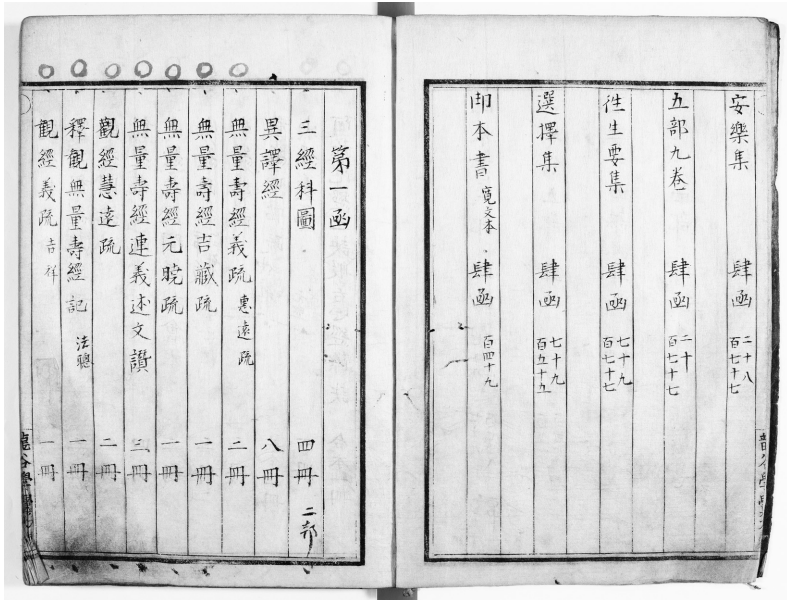 安樂集 肆函 二十八 百七十七
五部九卷 肆函 二十 百七十七
徃生要集 肆函 七十九 百七十七
選擇集 肆函 七十九 百五十五
印本書 寛文本 肆函 百四十九
第一函
三經科圖 四冊 二部
異譯經 八冊
無量壽經義疏 惠遠疏 二冊
無量壽經吉藏疏 一冊
無量壽經元曉疏 一冊
無量壽經連義述文讃 三冊
觀經慧遠疏 二冊
釋觀無量壽經記 法聰 一冊
觀經義疏 吉祥 一冊